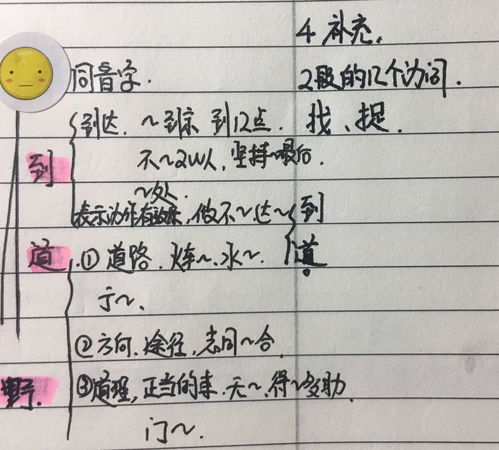 4 补充.
同音字.
2段的12个动词.
到达. ~到京 到12点.
找、捉
不~2W人, 坚持~最后.
到
~处.
表示动作有效果, 做不~达~
到
道
道 ① 道路. 火车~. 水~.
~.
② 方向. 途径, 志同~合.
野.
③ 道理, 正当的事. 无~. 得~多助.
门~.